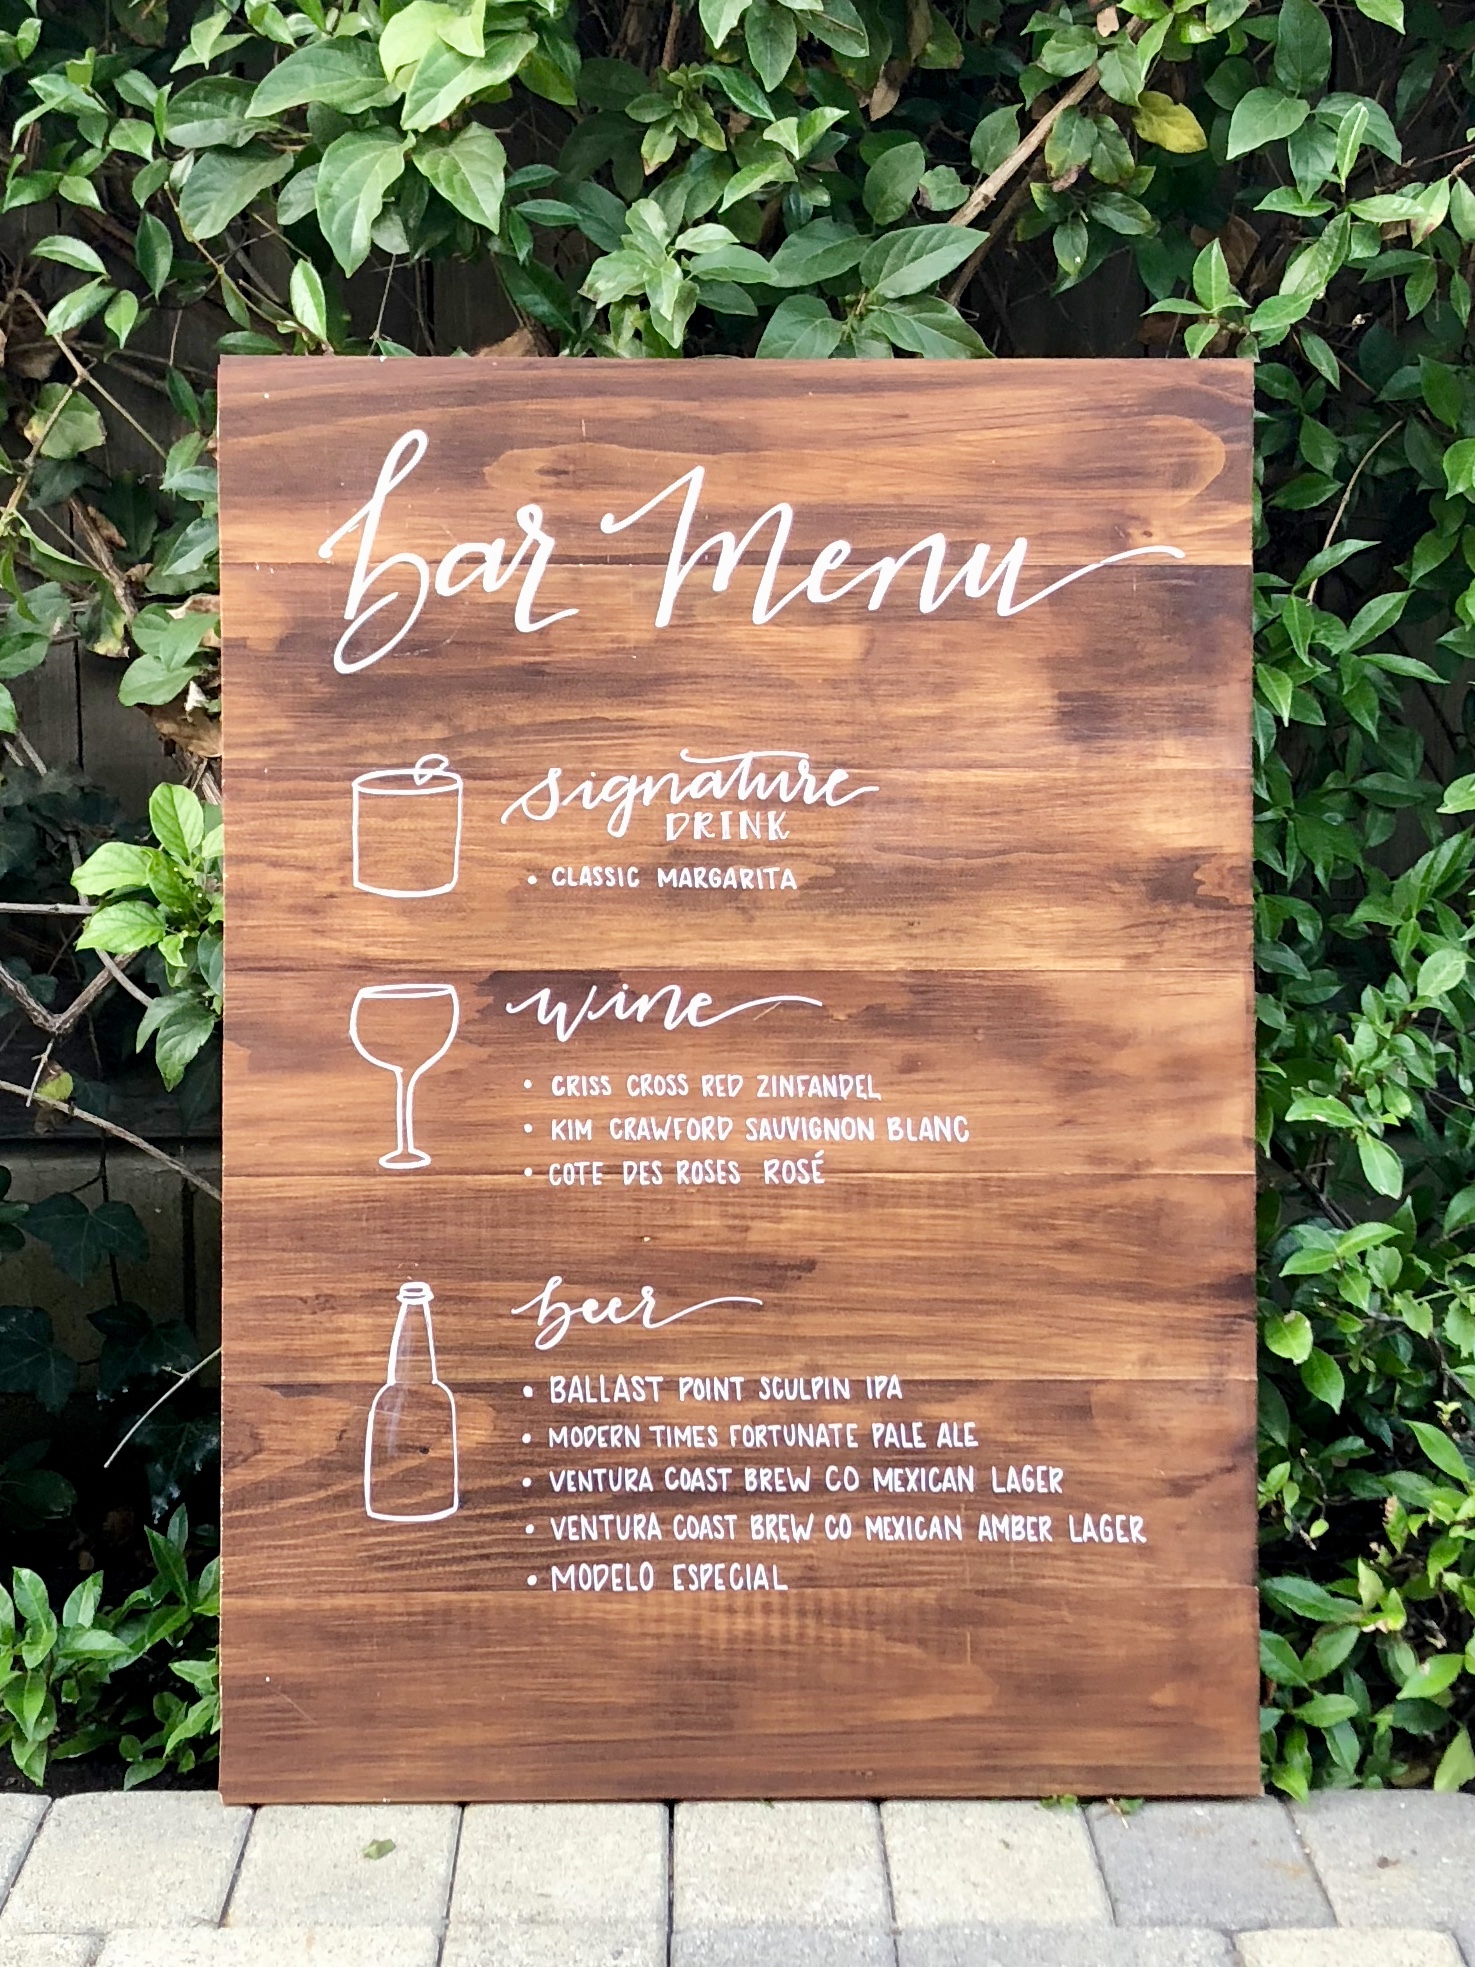 bar Menu
signature
DRINK
• CLASSIC MARGARITA
wine
• CRISS CROSS RED ZINFANDEL
• KIM CRAWFORD SAUVIGNON BLANC
• COTE DES ROSES ROSÉ
beer
• BALLAST POINT SCULPIN IPA
• MODERN TIMES FORTUNATE PALE ALE
• VENTURA COAST BREW CO MEXICAN LAGER
• VENTURA COAST BREW CO MEXICAN AMBER LAGER
• MODELO ESPECIAL